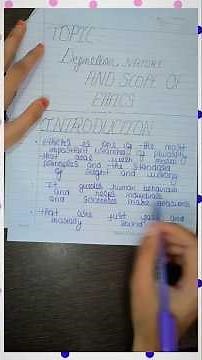 TOPIC
Definition, NATURE
AND SCOPE OF
ETHICS
INTRODUCTION
ethics is one of the most
important branches of
that deal with moral
principles and the standard
of right and wrong
It guides human behaviour
and helps individuals
and societies make decisions
that are just, good and
morally sound